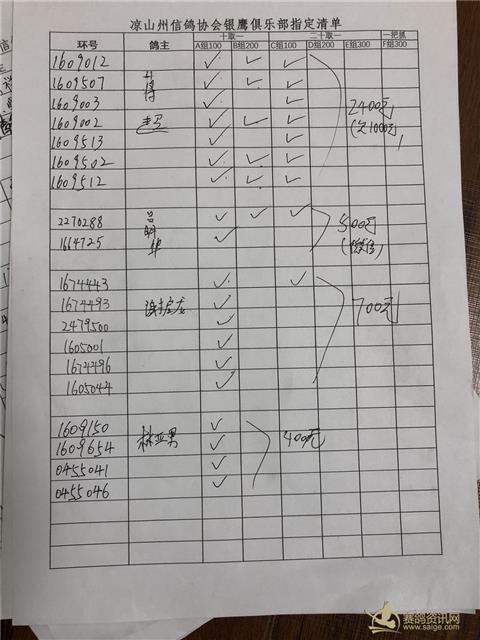 凉山州信鸽协会银鹰俱乐部指定清单
环号 鸽主 十取一 二十取一 一把抓
A组100 B组200 C组100 D组200 E组300 F组300
1609012 ✓ ✓ ✓
1609507 ✓ ✓ ✓
1609003 ✓ ✓
1609002 ✓ ✓ ✓ 2400元
1609513 ✓ ✓ (欠1000元)
1609502 ✓ ✓ ✓
1609512 ✓ ✓ ✓
2270288 吕 ✓ ✓ ✓ 500元
1664725 明华 ✓ (微信)
1674443 ✓ ✓
1674493 ✓ 700元
2479500 ✓
1605001 ✓
1674496 ✓
1605044 ✓
1609150 ✓
1609654 林亚男 ✓ 400元
0455041 ✓
0455046 ✓
赛鸽资讯网
www.saige.com